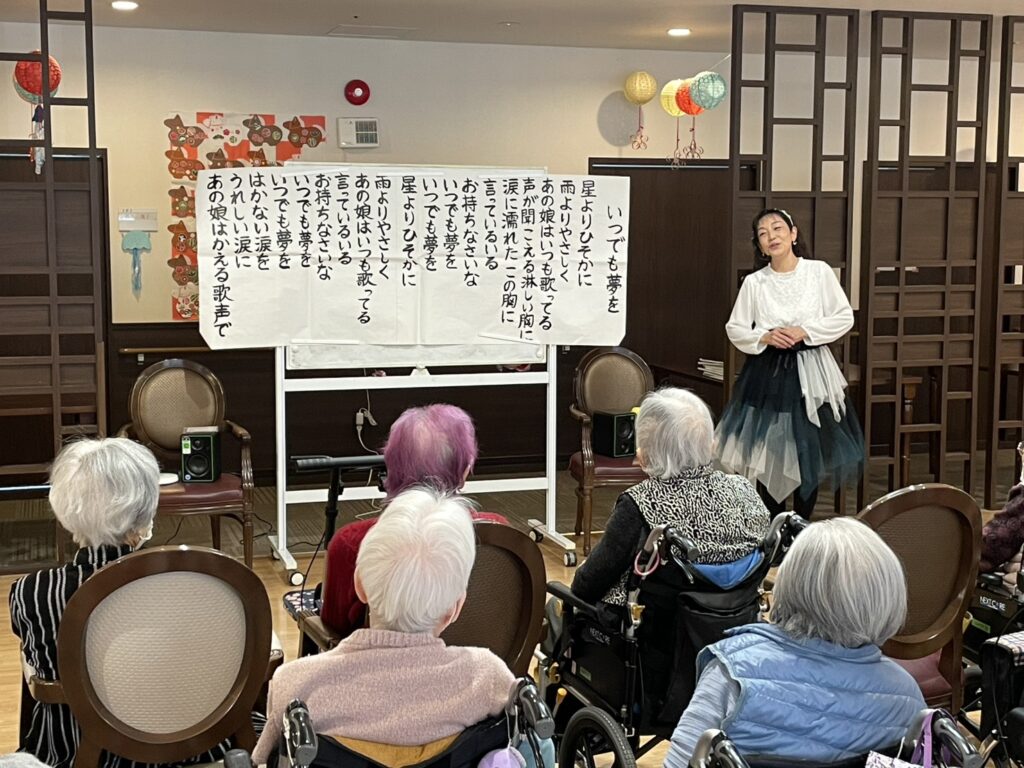 いつでも夢を
星よりひそかに
雨よりやさしく
あの娘はいつも歌ってる
声が聞こえる淋しい胸に
涙に濡れたこの胸に
言っているいる
お持ちなさいな
いつでも夢を
いつでも夢を
星よりひそかに
雨よりやさしく
あの娘はいつも歌ってる
言っているいる
お持ちなさいな
いつでも夢を
いつでも夢を
はかない涙を
うれしい涙に
あの娘はかえる歌声で
NEXT CORE
NEXT CORE